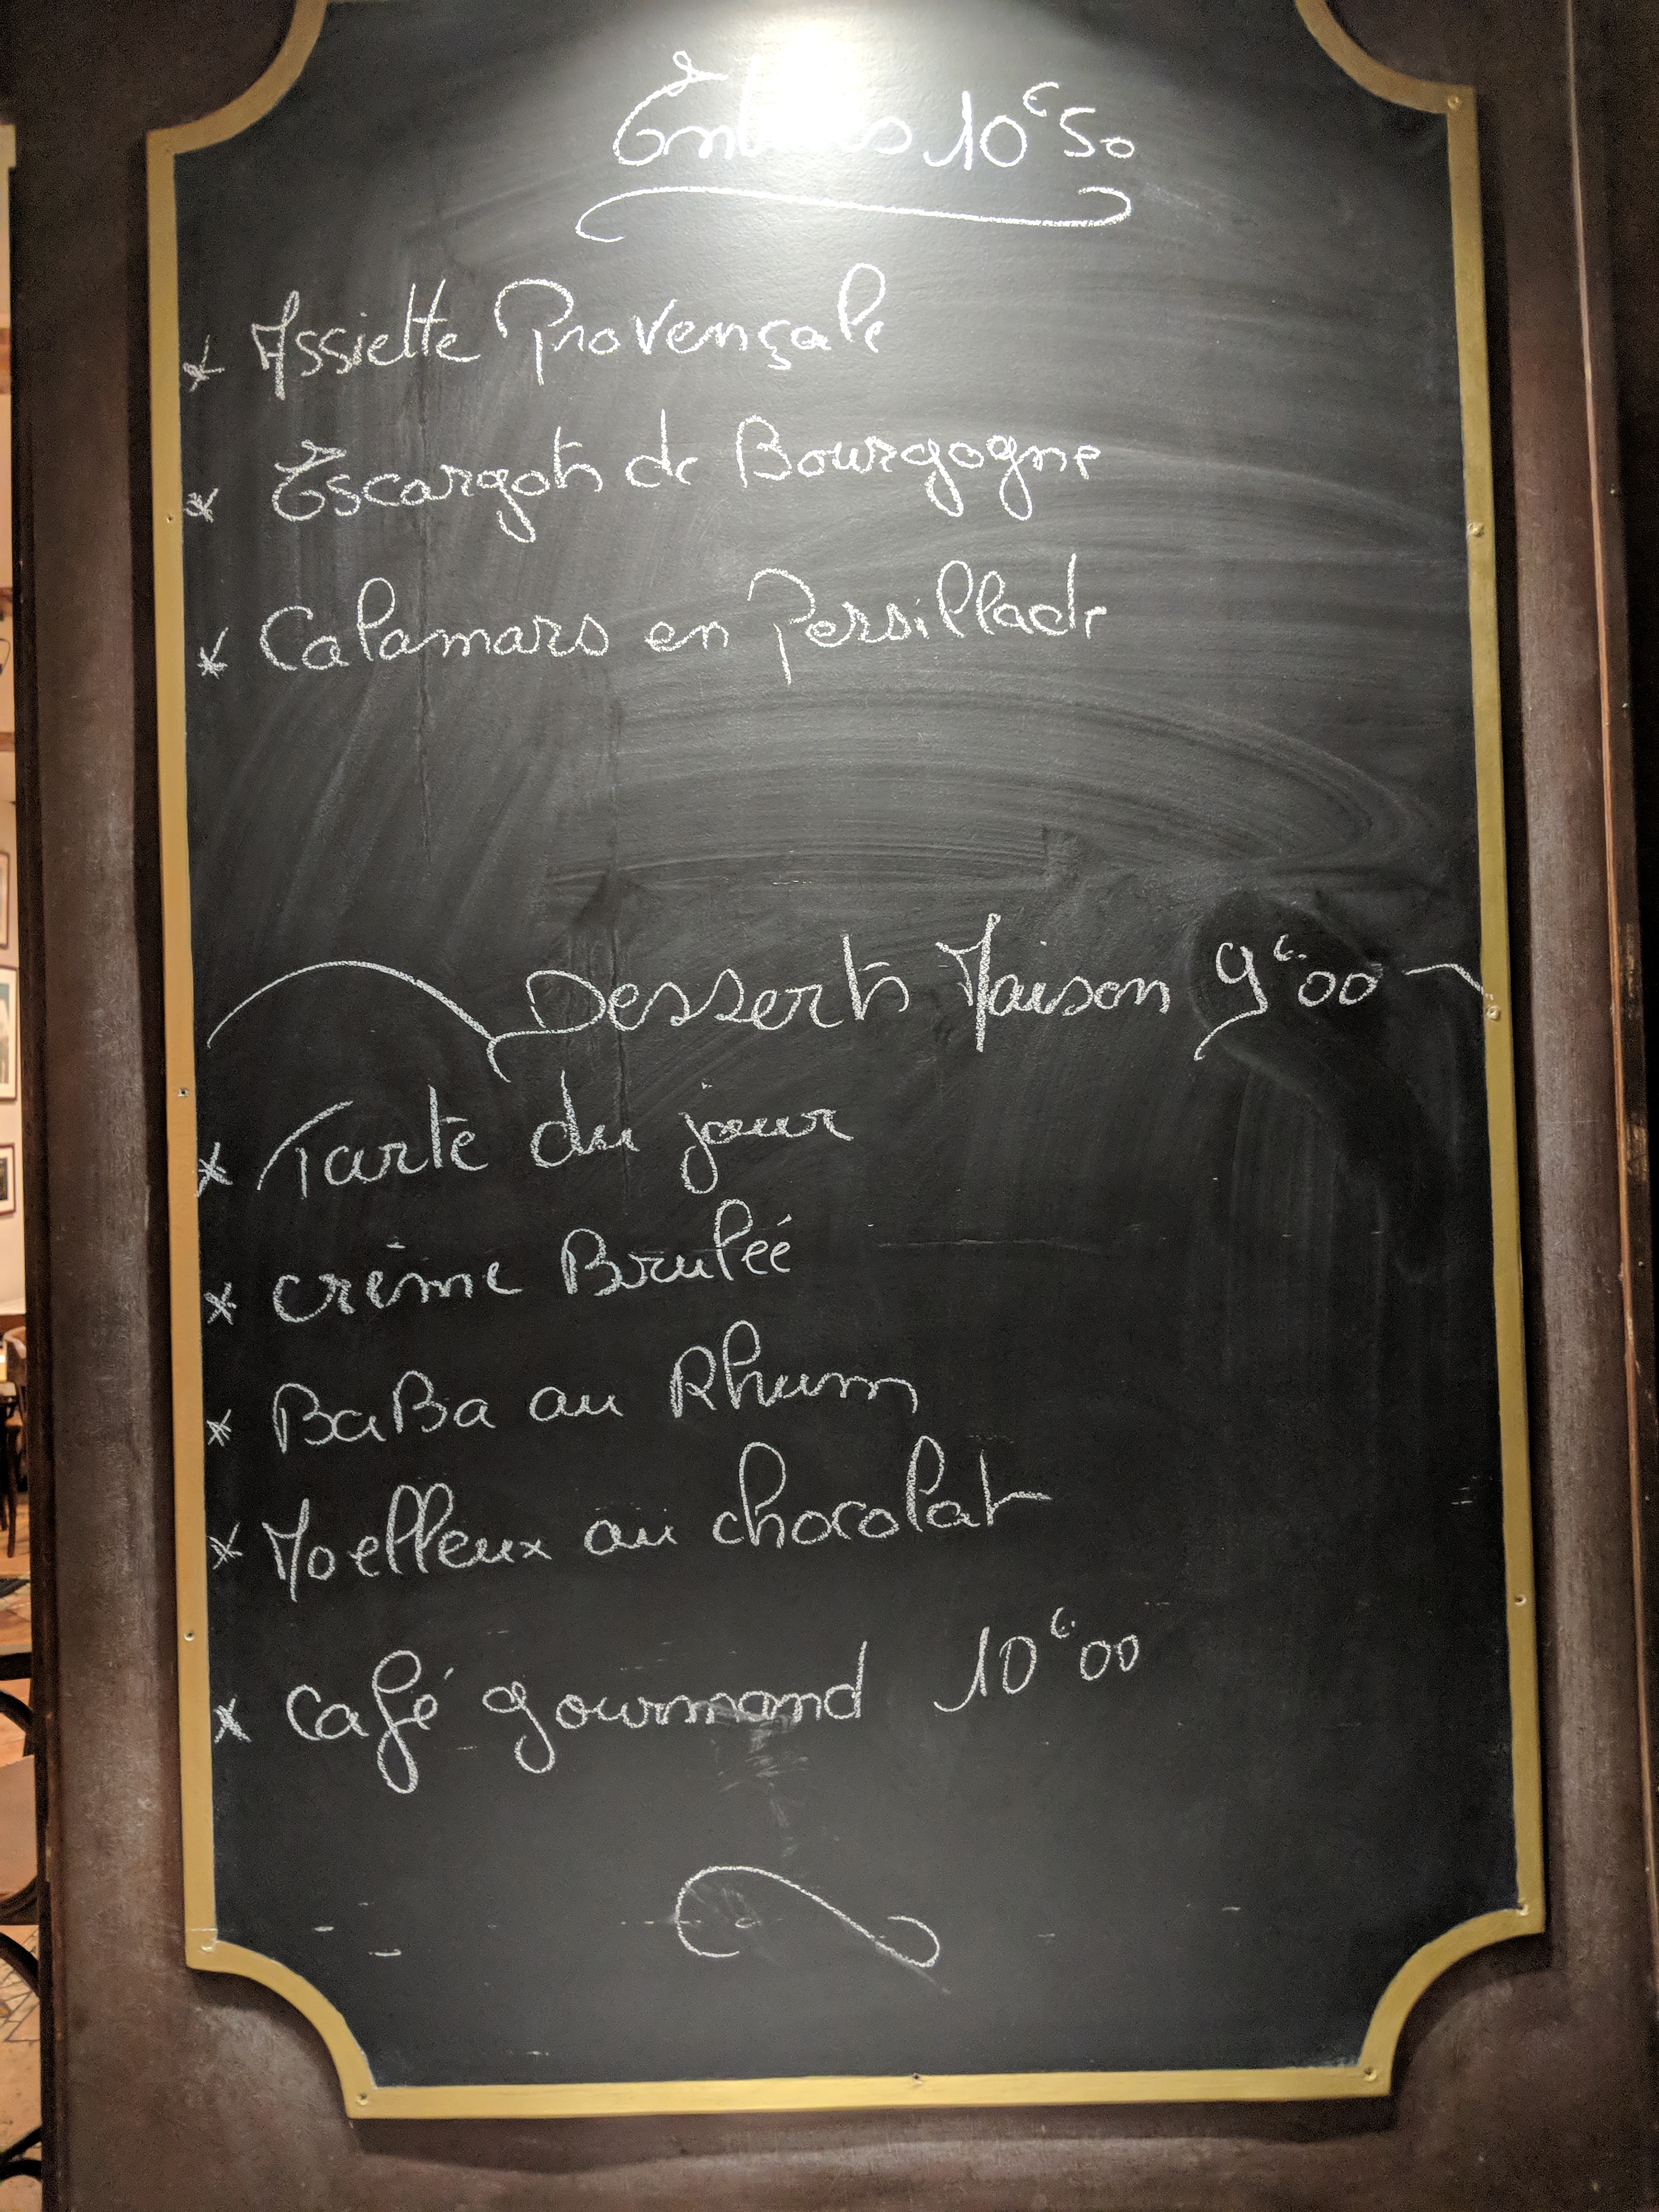 Entrées 10€50
* Assiette Provençale
* Escargots de Bourgogne
* Calamars en Persillade
Desserts Maison 9€00
* Tarte du jour
* crème Bruleé
* BaBa au Rhum
* Moelleux au chocolat
* Café gourmand 10€00